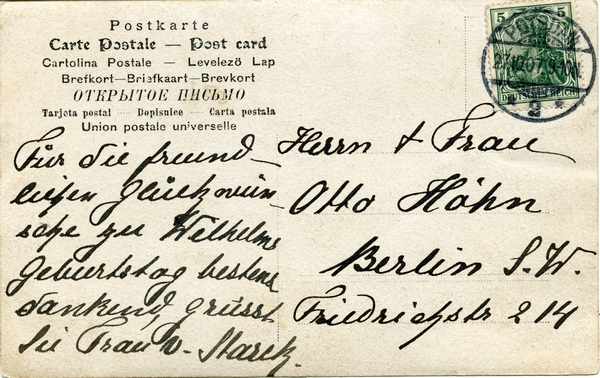 Postkarte
Carte Postale — Post card
Cartolina Postale — Levelező Lap
Brefkort—Briefkaart—Brevkort
ОТКРЫТОЕ ПИСЬМО
Tarjeta postal — Dopisnice — Carta postala
Union postale universelle
5 5
DEUTSCHES REICH
POTSDAM
27.12.07
2 *
Für die freund-
lichen Glückwün-
sche zu Wilhelms
Geburtstag bestens
dankend, grüsst
Sie Frau v. Starck.
Herrn & Frau
Otto Höhn
Berlin S.W.
Friedrichstr 214